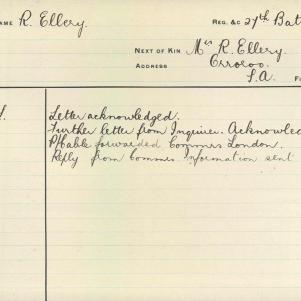 NAME R. Ellery. REG. &C 27th Bat
NEXT OF KIN Mrs R. Ellery.
ADDRESS Orroroo.
S.A.
Letter acknowledged.
Further letter from Inquirer. Acknowled
forwarded Commrs London.
Reply from Commrs Information sent